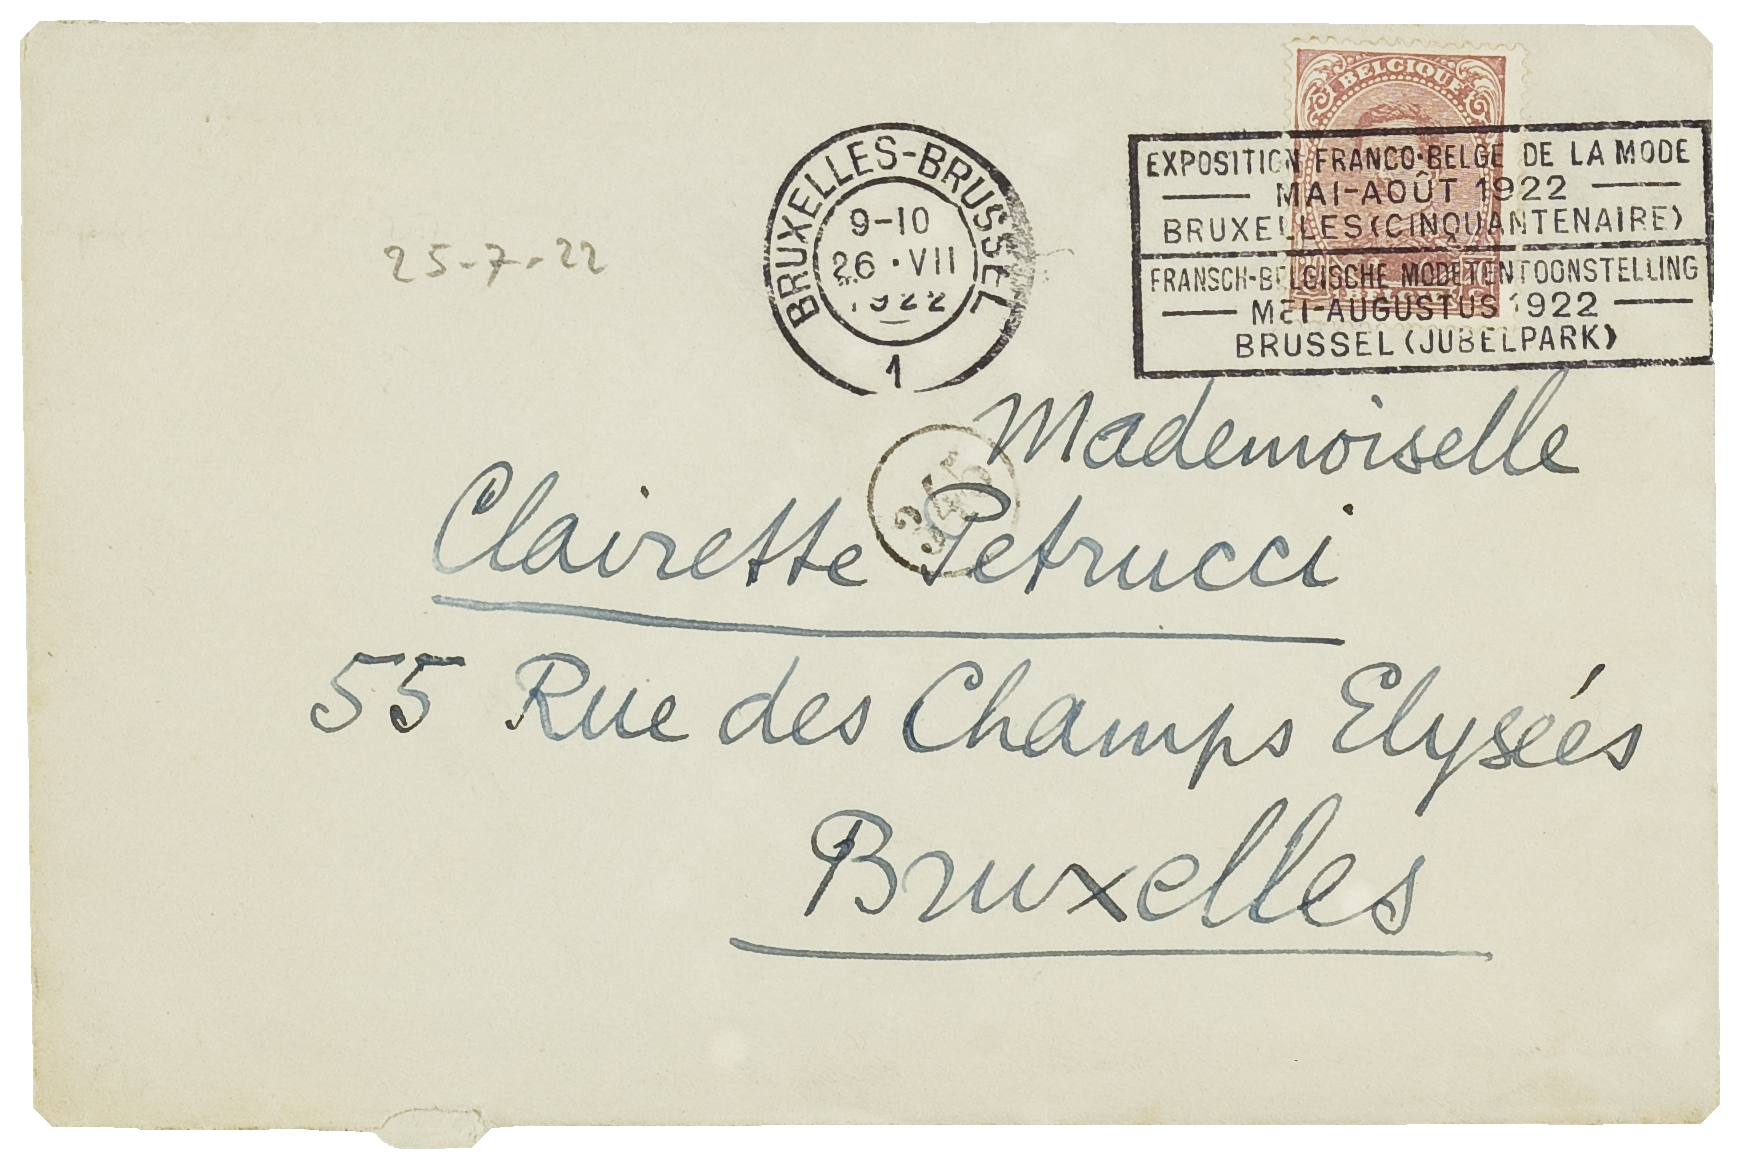 BELGIQUE
EXPOSITION FRANCO-BELGE DE LA MODE
MAI-AOÛT 1922
BRUXELLES (CINQUANTENAIRE)
FRANSCH-BELGISCHE MODETENTOONSTELLING
MEI-AUGUSTUS 1922
BRUSSEL (JUBELPARK)
BRUXELLES-BRUSSEL
9-10
26·VII
1922
1
25-7-22
345
Mademoiselle
Clairette Petrucci
55 Rue des Champs Elysées
Bruxelles